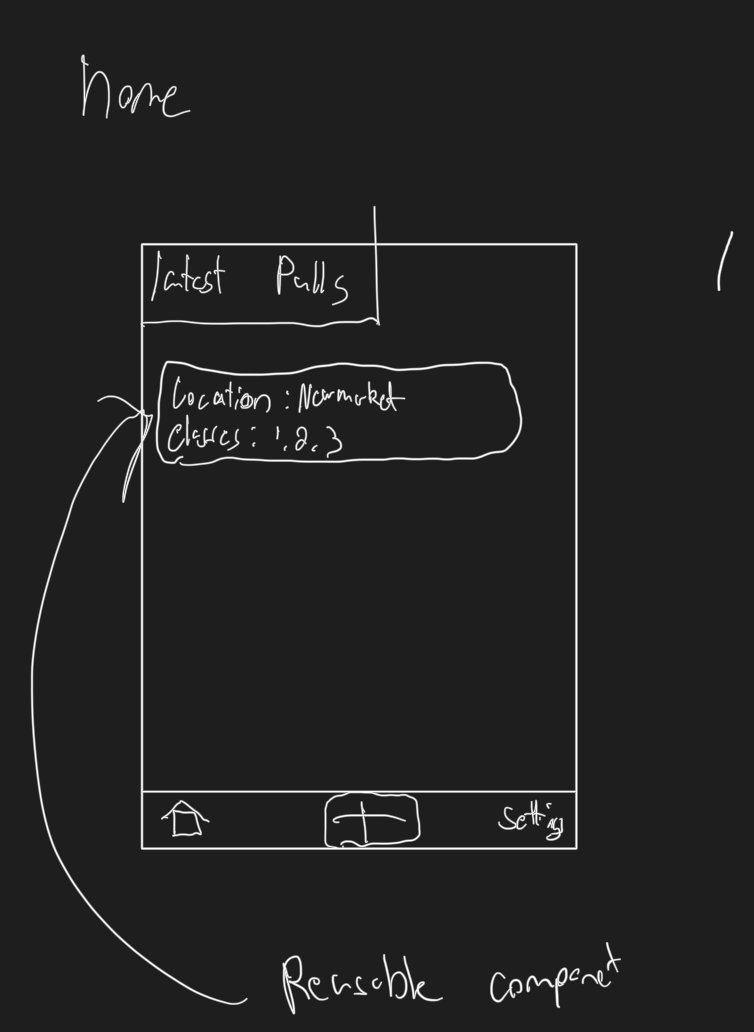 home
latest Pulls
Location : Newmarket
Classes : 1, 2, 3
Setting
Reusable componet